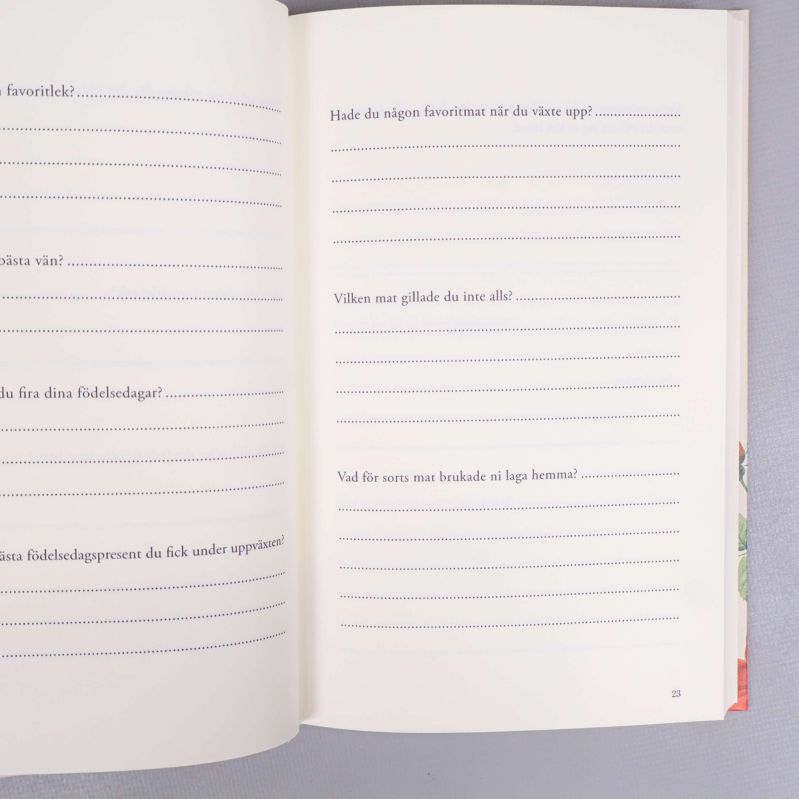 favoritlek?
bästa vän?
du fira dina födelsedagar?
födelsedagspresent du fick under uppväxten?
Hade du någon favoritmat när du växte upp?
Vilken mat gillade du inte alls?
Vad för sorts mat brukade ni laga hemma?
23